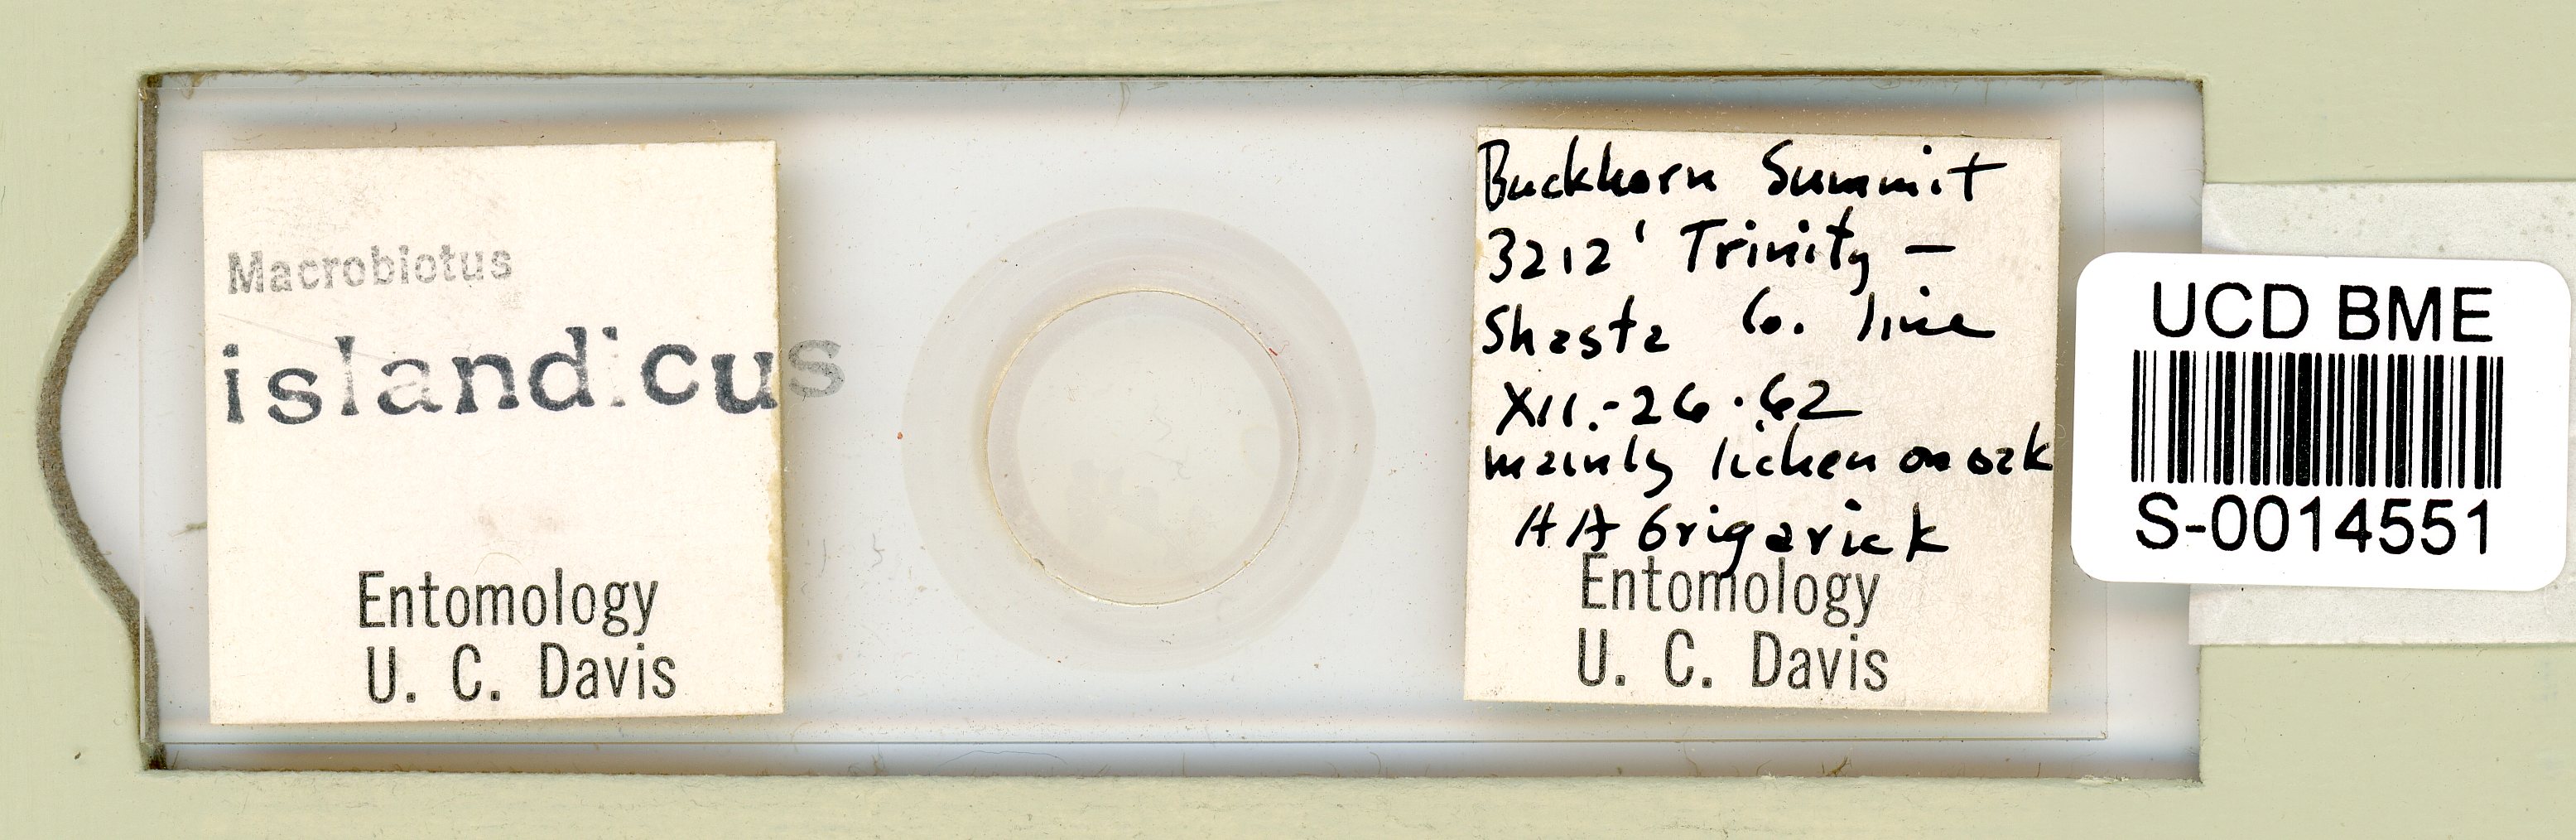 Macrobiotus
islandicus
Entomology
U. C. Davis
Buckhorn Summit
3212' Trinity –
Shasta Co. line
XII.-26.62
mainly lichen on oak
A A Grigarick
Entomology
U. C. Davis
UCD BME
S-0014551